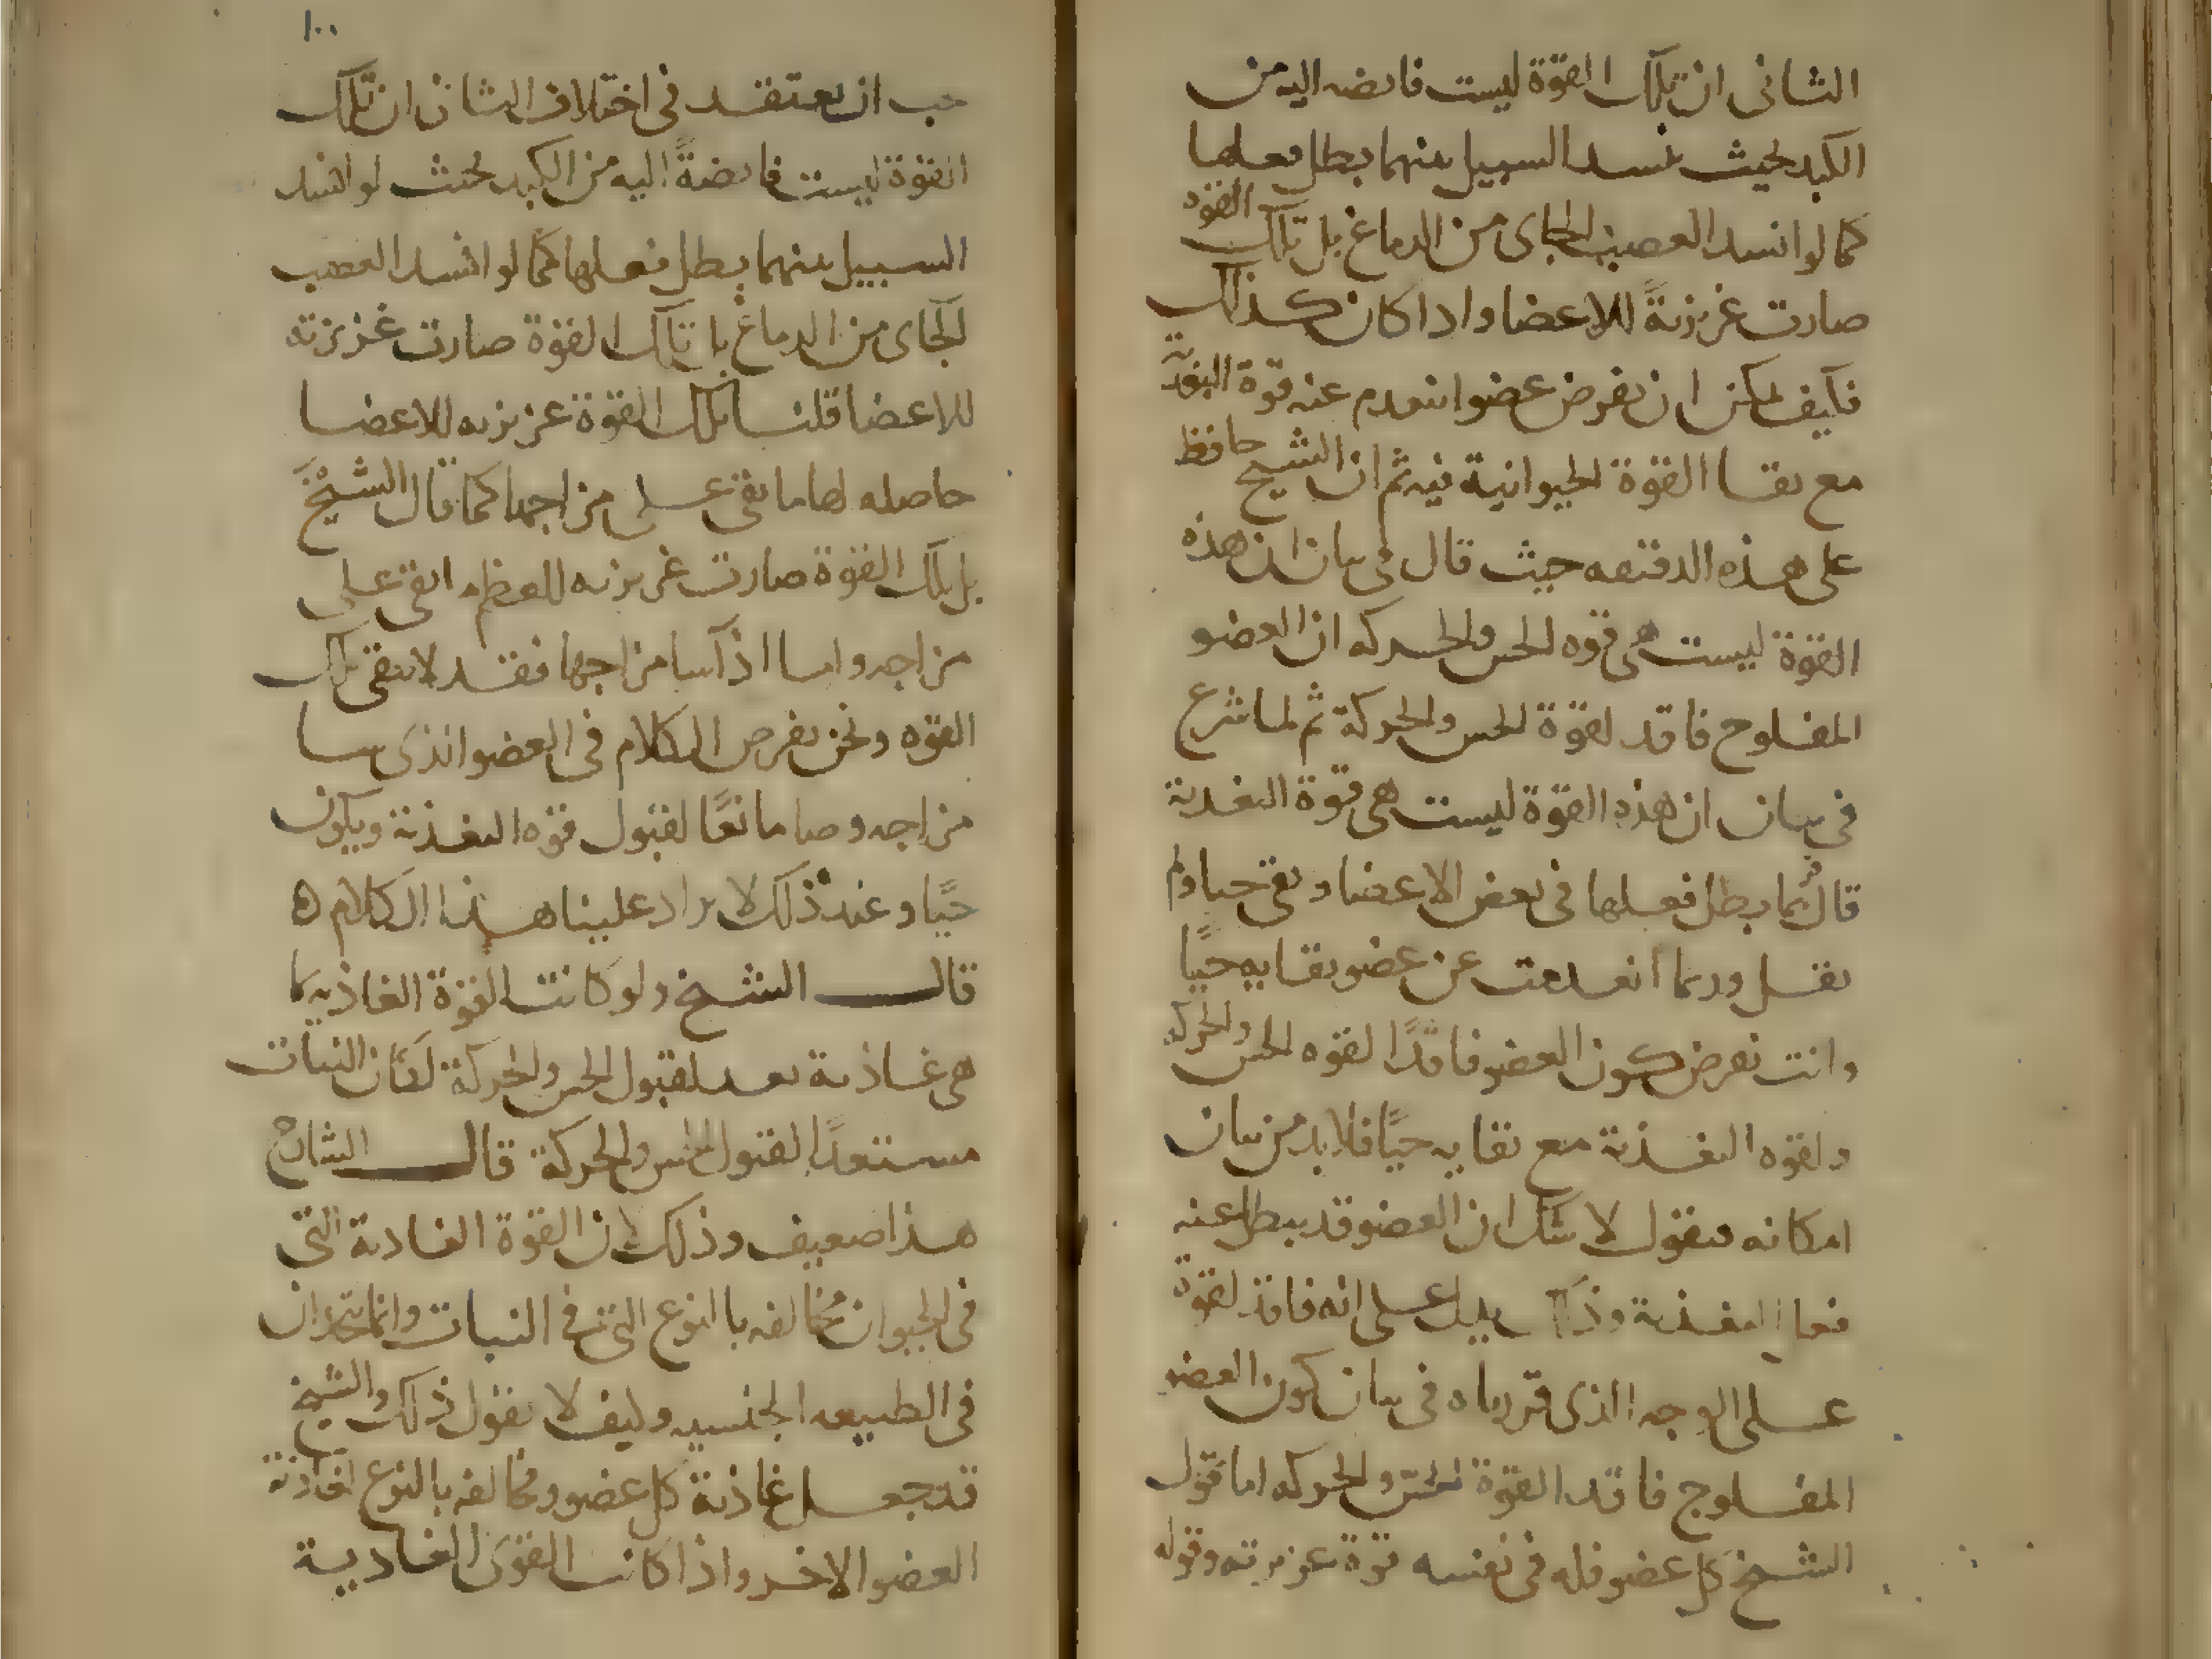 الثانى ان تلك القوة ليست فايضه اليه من
الكبد بحيث ينسد السبيل بينهما بطل فعلها
كما لو انسد العصب الجاى من الدماغ بل تلك القوه
صارت غريزية للاعضا واذا كان كذلك
فكيف يمكن ان نفرض عضوا ينعدم عنه قوة التغذية
مع بقا القوة الحيوانية فيه ثم ان الشيخ حافظ
على هذه الدقيقه حيث قال فى بيان ان هذه
القوة ليست هى قوه الحس والحركه ان العضو
المفلوج فاقد لقوة الحس والحركة ثم لما شرع
فى بيان ان هذه القوة ليست هى قوة التغدية
قال ربما بطل فعلها فى بعض الاعضا وبقى حيا ولم
يقل وربما انعدمت عن عضو بقايه حيًا
وانت تفرض كون العضو فاقدًا لقوه الحس والحركه
ولقوه التغذية مع بقايه حيًا فلا بد من بيان
امكانه فنقول لا شك ان العضو قد يبطل عنه
فعل التغذية وذلك يدل على انه فاقد لقوة
على الوجه الذى قررناه فى بيان كون العضو
المفلوج فاقد القوة الحس والحركه اما قول
الشيخ كل عضو فله فى نفسه قوة غريزية وقوله
١٠٠
يجب ان يعتقد فى اختلاف الثانى ان تلك
القوة ليست فايضةً اليه من الكبد بحيث لو انسد
السبيل بينهما بطل فعلها كما لو انسد العصب
الجاى من الدماغ بل تلك القوة صارت غريزية
للاعضا قلنا تلك القوة غريزيه للاعضا
حاصله لها ما بقى على مزاجها كما قال الشيخ
بل تلك القوة صارت غريزيه للعظم ابقى على
مزاجه واما اذا سا مزاجها فقد لا تبقى تلك
القوه ونحن نفرض الكلام فى العضو الذى سا
مزاجه وصا مانعًا لقبول قوه التغذية ويكون
حيًا وعند ذلك لا يراد علينا هذا الكلام ه
قال الشيخ ولو كانت القوة الغاذيه بما
هى غاذية تعد لقبول الحس والحركة لكان النبات
مستعدًا لقبول الحس والحركة قال الشارح
هذا ضعيف وذلك لان القوة الغادية التى
فى الحيوان مخالفه با لنوع التى فى النبات وانما يتحدان
فى الطبيعه الجنسيه وكيف لا نقول ذلك والشيخ
قد جعل غاذية كل عضو ومخالفه بالنوع لغاذية
العضو الاخر واذا كانت القوى الغادية